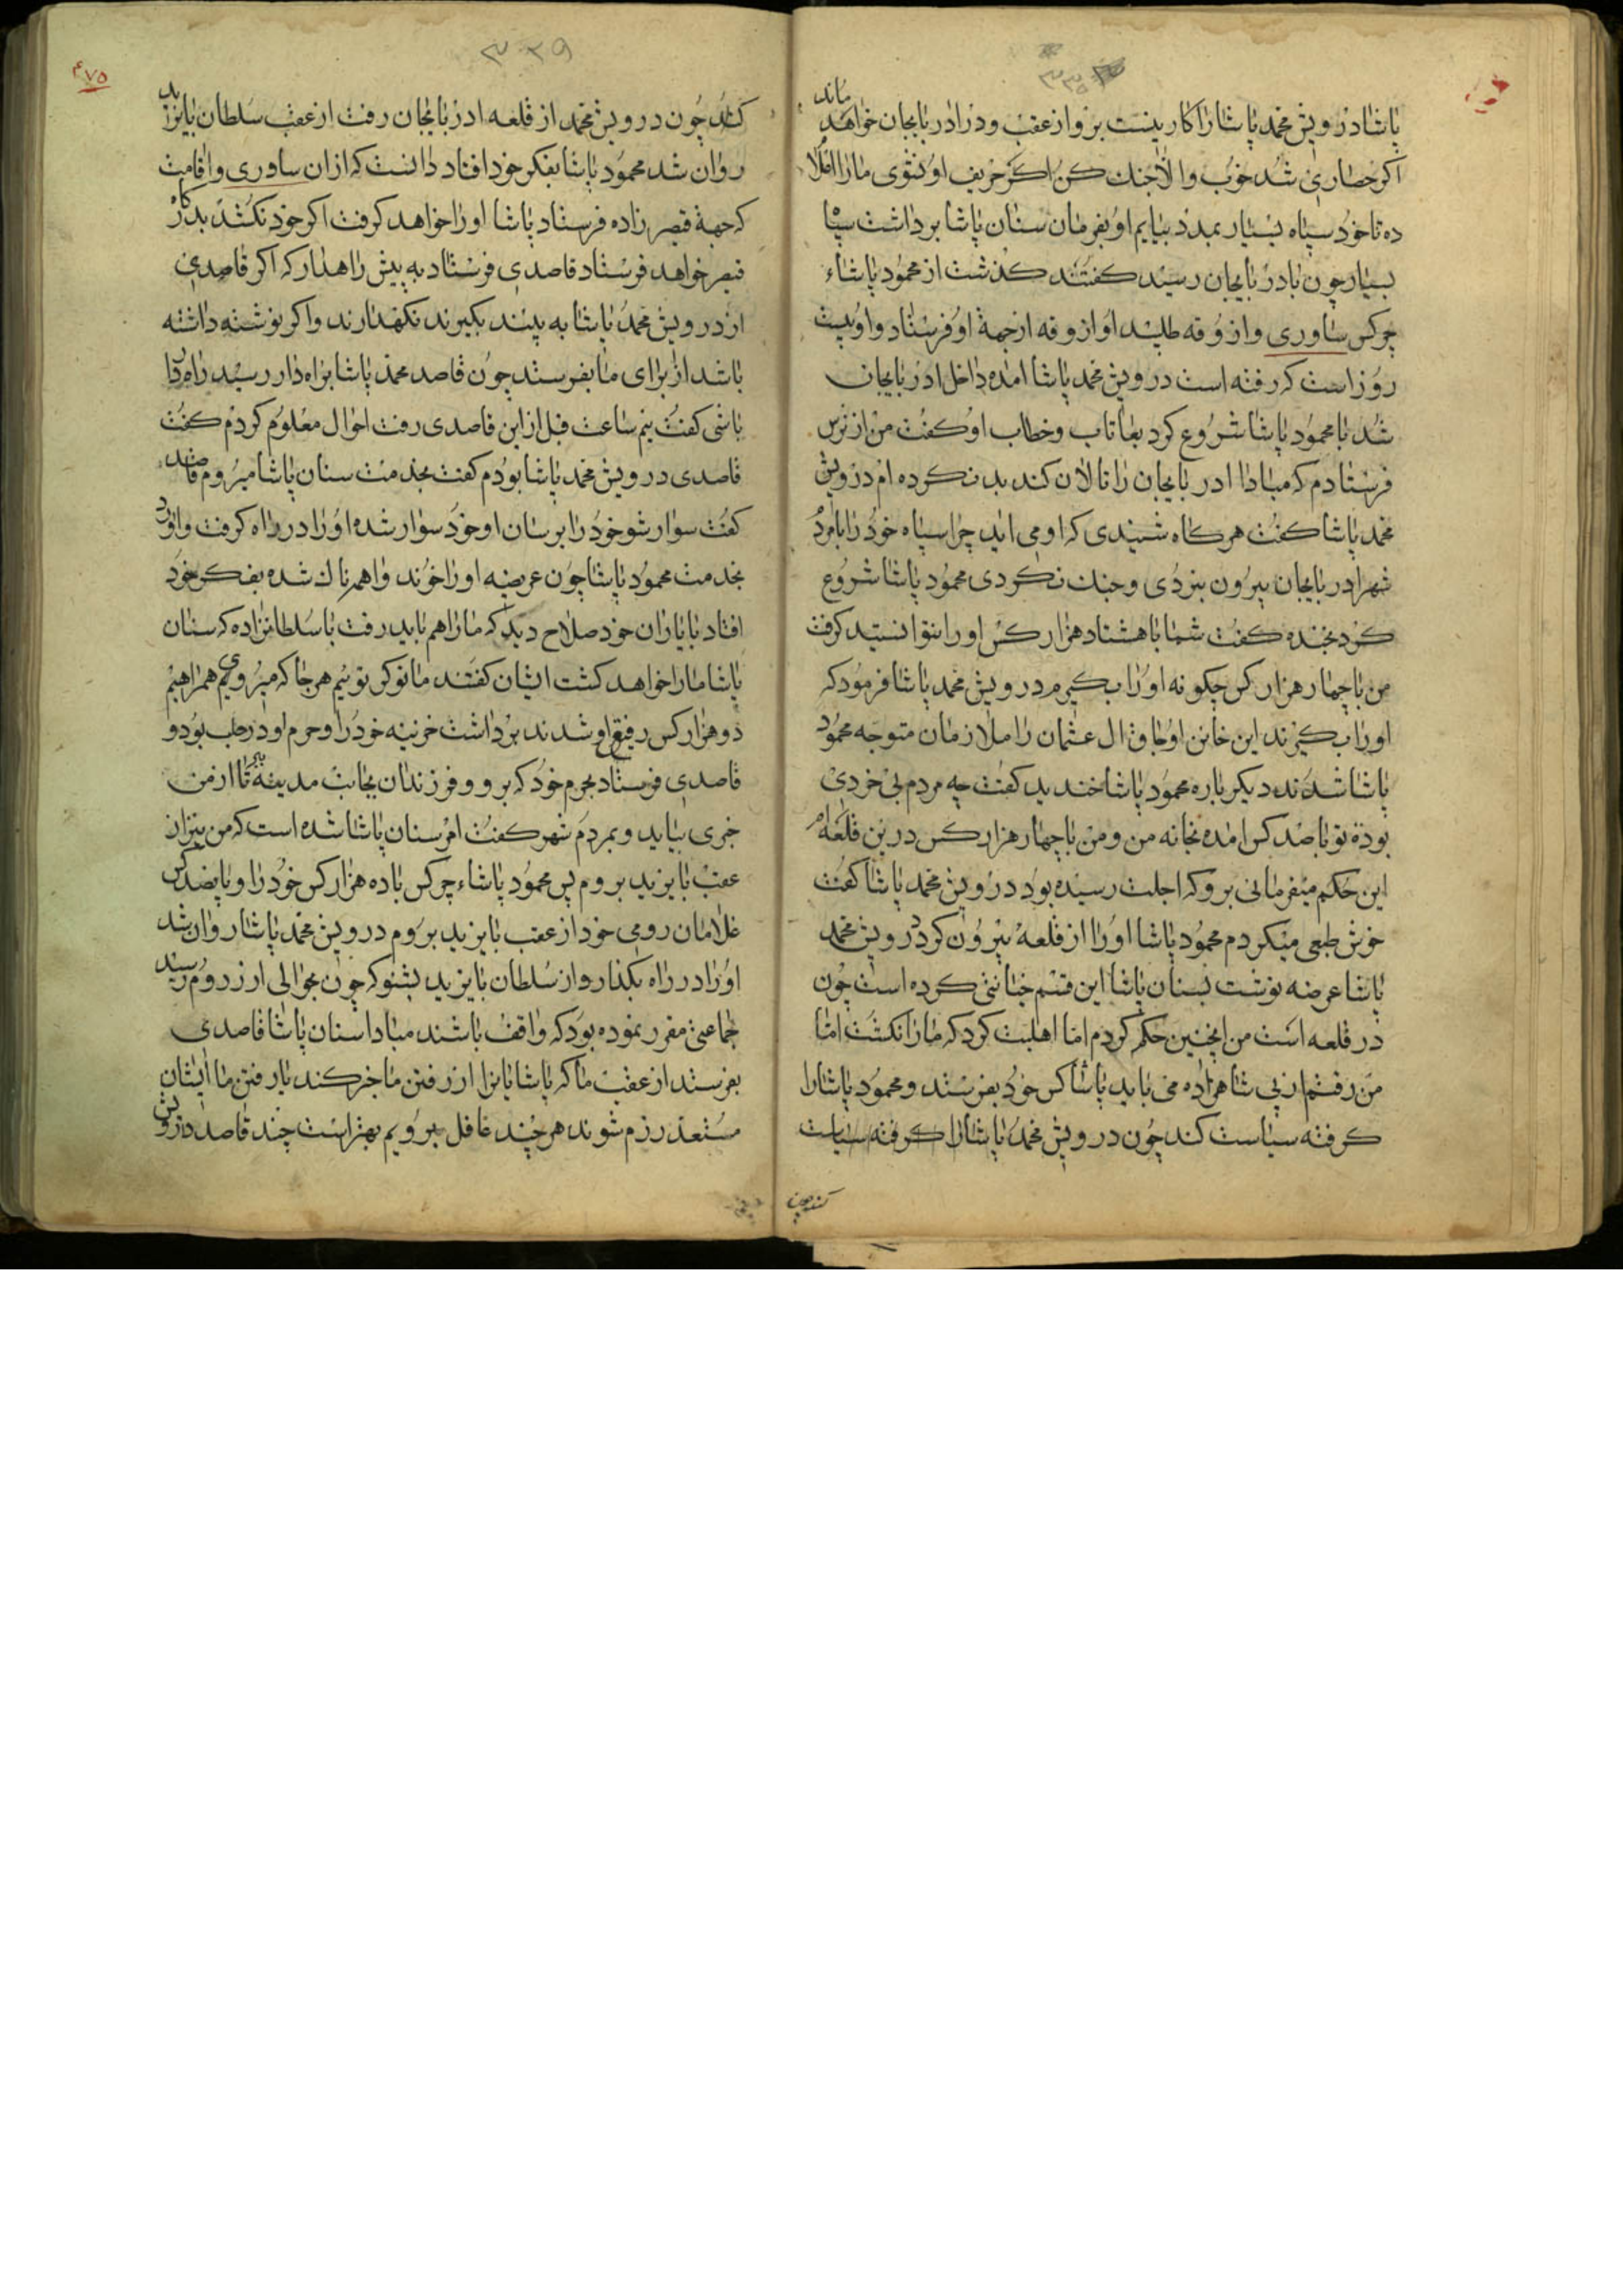 پاشا درویش محمد پاشا را کار نیست برو از عقب و در ادربایجان خواهد ماند
اکر حصاری شد خوب والا جنک کن اکر حریف او نشوی ما را اعلا
ده تا خود سپاه بسیار بمدد بیایم او بفرمان سنان پاشا برداشت سپا
بسیار چون بادربایجان رسید کفتند کذشت از محمود پاشاء
چرکس ساوری و ازوقه طلبید او ازوقه ازجهة او فرستاد و او بیست
روز است که رفته است درویش محمد پاشا امده داخل ادربایجان
شد با محمود پاشا شروع کرد بعتاب و خطاب او کفت من از ترس
فرستادم که مبادا ادربایجان را تالان کند بد نکرده ام درویش
محمد پاشا کفت هرکاه شنیدی که او می اید چرا سپاه خود را با مرد
شهر ادربایجان بیرون نبردی و جنک نکردی محمود پاشا شروع
کرد بخنده کفت شما با هشتاد هزار کس او را نتوانستید کرفت
من با چهار هزار کس چکونه او را بکیرم درویش محمد پاشا فرمود که
او را بکیرند این خاین اوجاق ال عثمان را ملازمان متوجه محمود
پاشا شدند دیکر باره محمود پاشا خندید کفت چه مردم بی خردی
بودۀ تو با صد کس امده بخانه من و من با چهار هزار کس درین قلعه ام
این حکم میفرمائی برو که اجلت رسیده بود درویش محمد پاشا کفت
خوش طبعی میکردم محمود پاشا او را از قلعه بیرون کرد درویش محمد
پاشا عرضه نوشت بسنان پاشا این قسم خیانتی کرده است چون
در قلعه است من اینچنین حکم کردم اما اهلیت کرد که ما را نکشت اما
من رفتم از پی شاهزاده می باید پاشا کس خود بفرستد و محمود پاشا را
کرفته سیاست کند چون درویش محمد پاشا را کرفته سیاست
کند چون
۳۳۹
۴۷۵
کند چون درویش محمد از قلعه ادربایجان رفت از عقب سلطان بایزید
روان شد محمود پاشا بفکر خود افتاد دانست که ازان ساوری و اقامت
که جهة قیصرزاده فرستاد پاشا او را خواهد کرفت اکر خود نکشد بدکار
قیصر خواهد فرستاد قاصدی فرستاد به پیش راهدار که اکر قاصدی
از درویش محمد پاشا به بینند بکیرند نکهدارند و اکر نوشته داشته
باشد از برای ما بفرستد چون قاصد محمد پاشا براه دار رسید راه دار
باشی کفت نیم ساعت قبل ازاین قاصدی رفت احوال معلوم کردم کفت
قاصدی درویش محمد پاشا بودم کفت بخدمت سنان پاشا میروم قاصد
کفت سوار شو خود را برسان او خود سوار شده او را در راه کرفت و اورد
بخدمت محمود پاشا چون عریضه او را خواند واهمه ناک شده بفکر خود
افتاد با یاران خود صلاح دید که ما را هم باید رفت با سلطانزاده که سنان
پاشا ما را خواهد کشت ایشان کفتند ما نوکر توئیم هر جا که میروی همراهیم
دو هزار کس رفیق او شدند برداشت خزنیه خود را و حرم او در حلب بود و
قاصدی فرستاد بحرم خود که برو و فرزندان بجانب مدینه تا از من
خبری بیاید و بمردم شهر کفت امر سنان پاشا شده است که من نیز از
عقب بایزید بروم پس محمود پاشاء چرکس با ده هزار کس خود را و پانصد کس
غلامان رومی خود از عقب بایزید بروم درویش محمد پاشا روان شد
او را در راه بکذار و از سلطان بایزید بشنو که چون بحوالی ارزروم رسید
جماعتی مقرر نموده بود که واقف باشند مبادا سنان پاشا قاصدی
بفرستد از عقب ما که پاشایانرا از رفتن ما خبر کند یا رفتن ما ایشان
مستعد رزم شوند هرچند غافل برویم بهتر است چند قاصد درویش